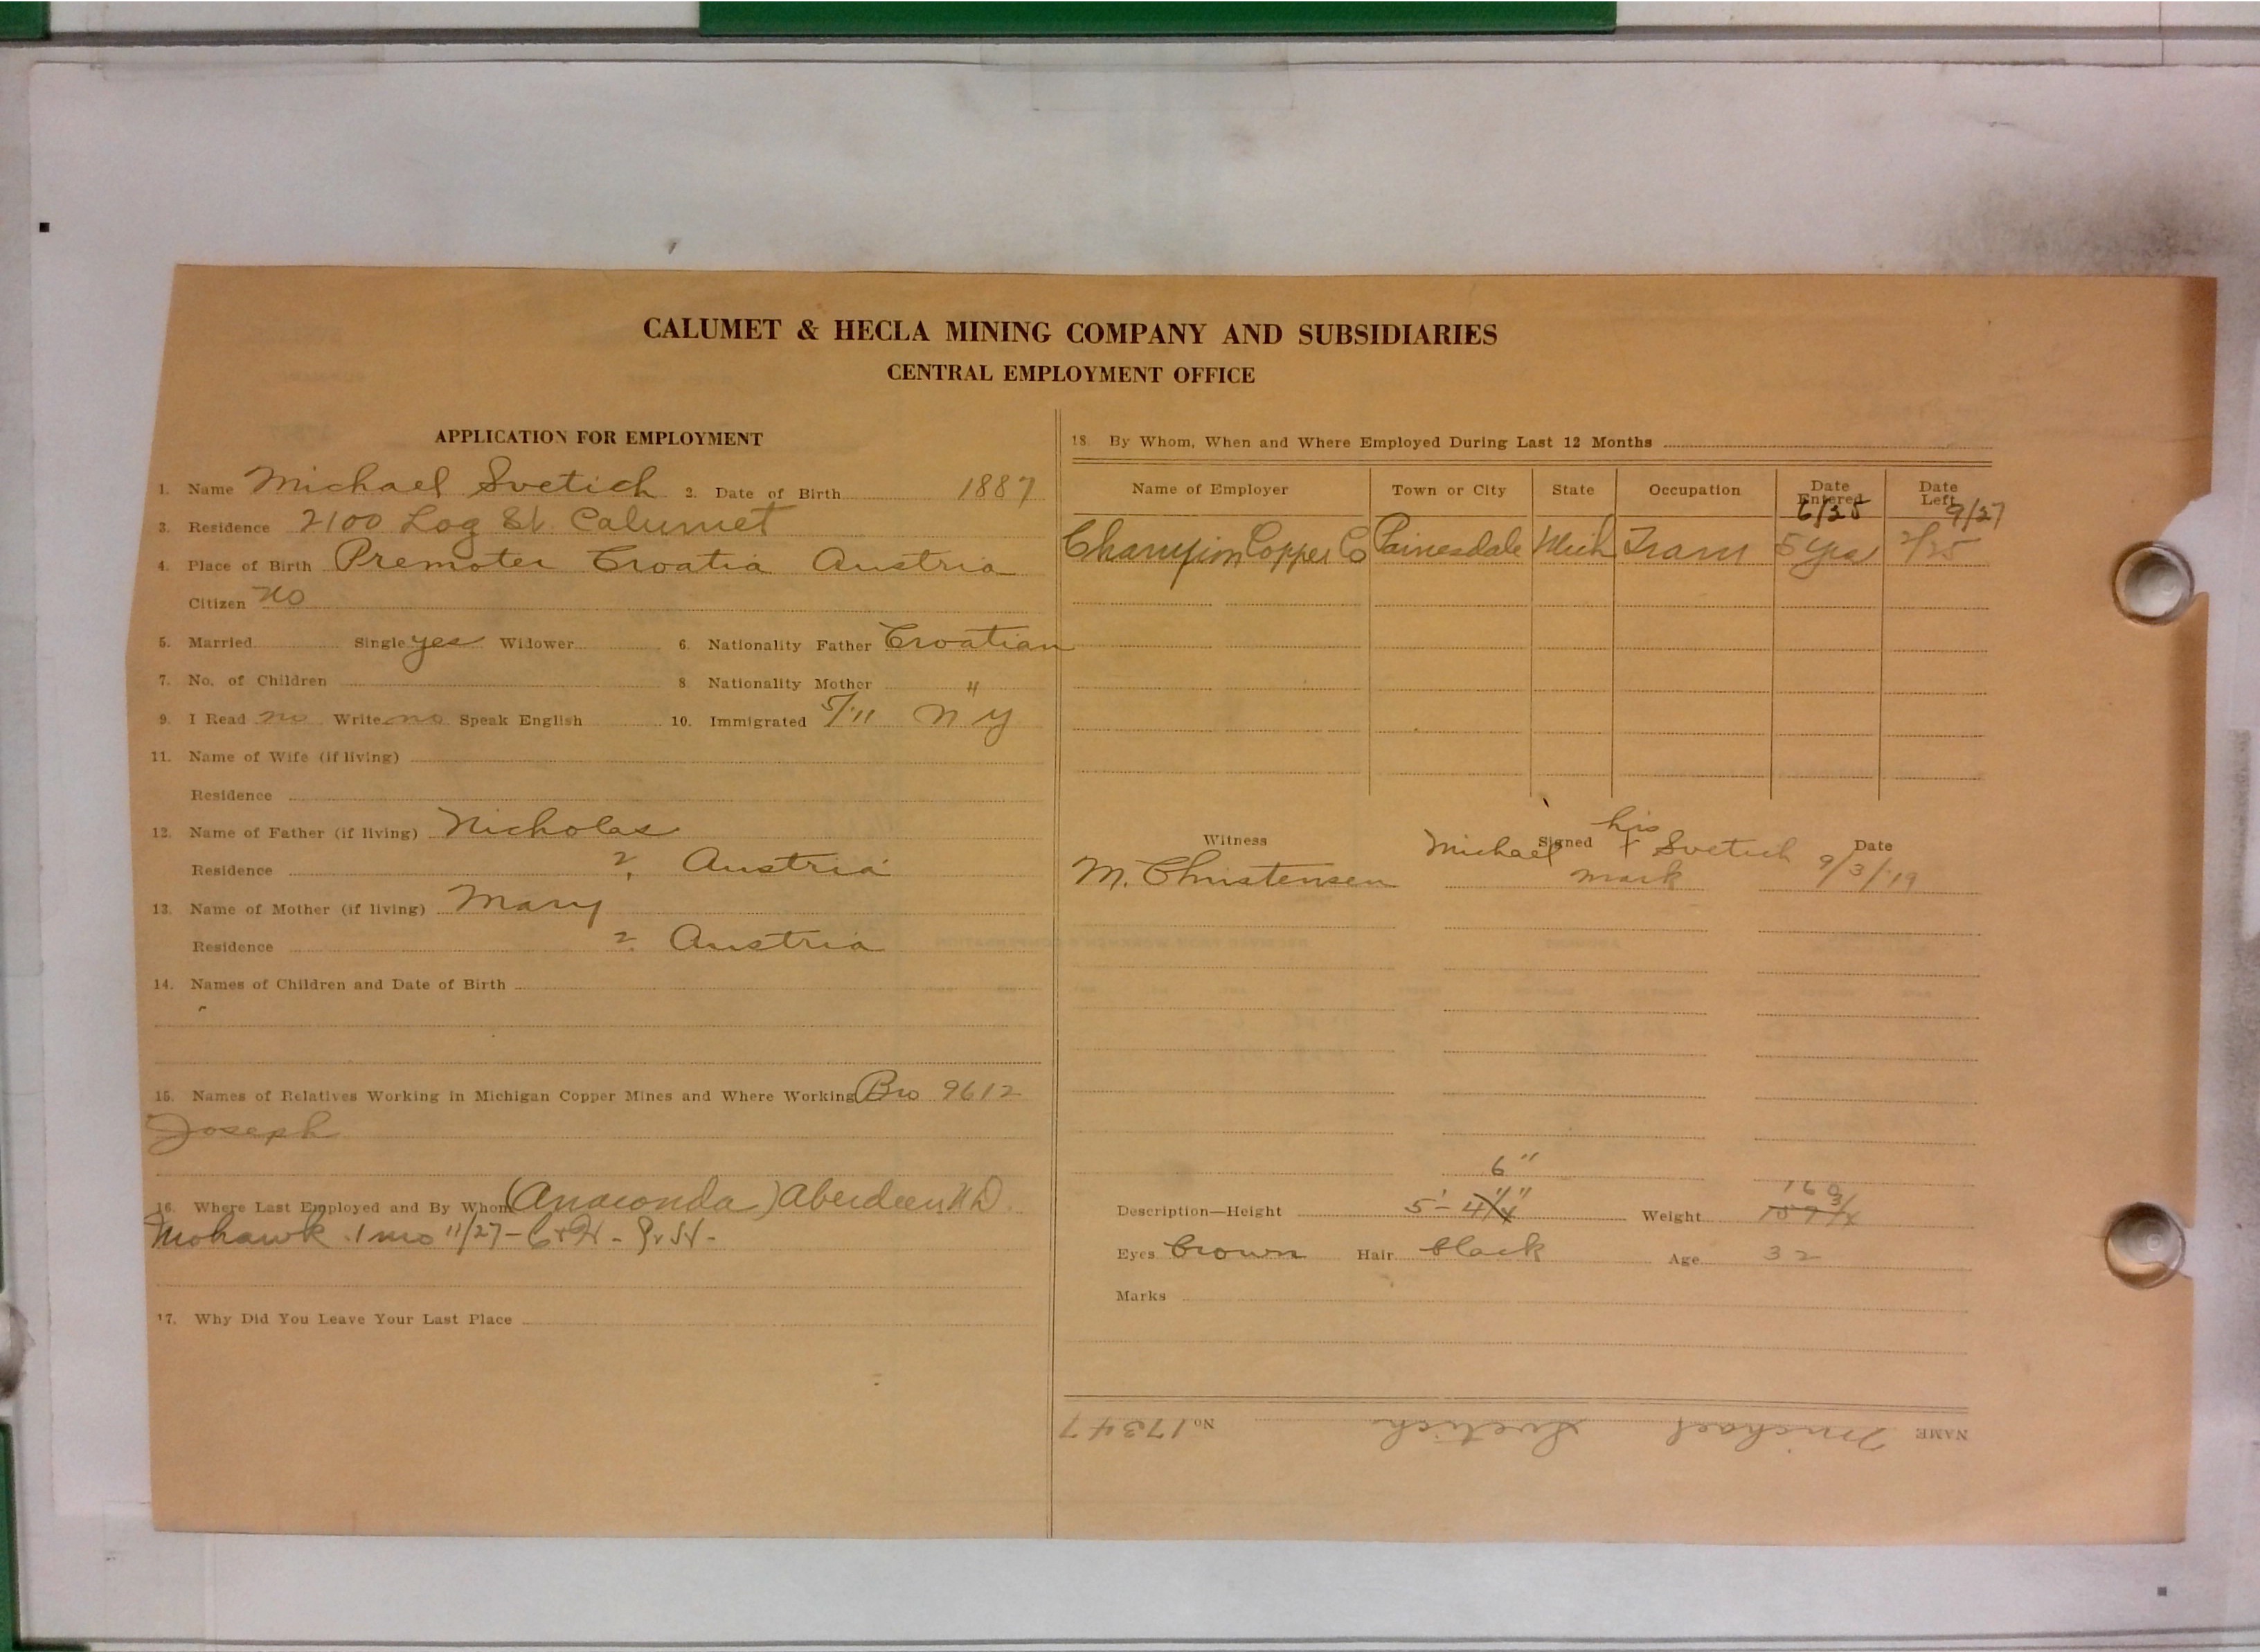 CALUMET & HECLA MINING COMPANY AND SUBSIDIARIES
CENTRAL EMPLOYMENT OFFICE
APPLICATION FOR EMPLOYMENT
1. Name Michael Svetich 2. Date of Birth 1887
3. Residence 2100 Log St. Calumet
4. Place of Birth Premoter Croatia Austria
Citizen No
5. Married Single yes Widower 6. Nationality Father Croatian
7. No. of Children 8 Nationality Mother "
9. I Read no Write no Speak English 10. Immigrated 5/'11 N Y
11. Name of Wife (if living)
Residence
12. Name of Father (if living) Nicholas
Residence ? Austria
13. Name of Mother (if living) Mary
Residence ? Austria
14. Names of Children and Date of Birth
15. Names of Relatives Working in Michigan Copper Mines and Where Working Bro 9612
Joseph
16. Where Last Employed and By Whom (Anaconda) Aberdeen
Mohawk 1 mo 11/27 - C & H -
17. Why Did You Leave Your Last Place
18. By Whom, When and Where Employed During Last 12 Months
Name of Employer Town or City State Occupation Date Entered Date Left
6/25 9/27
Champion Copper Co Painesdale Mich Tram 5 yrs 2/25
Witness Signed his Date
Michael + Svetich
M. Christensen mark 9/3/'19
6"
160
Description—Height 5'- 4 1/4" Weight 157 3/4
Eyes brown Hair black Age 32
Marks
NAME Michael Svetich No. 17347